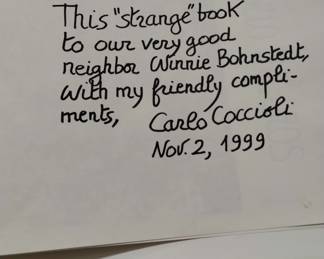 This "strange" book
to our very good
neighbor Winnie Bohnstedt,
With my friendly compli-
ments,
Carlo Coccioli
Nov. 2, 1999